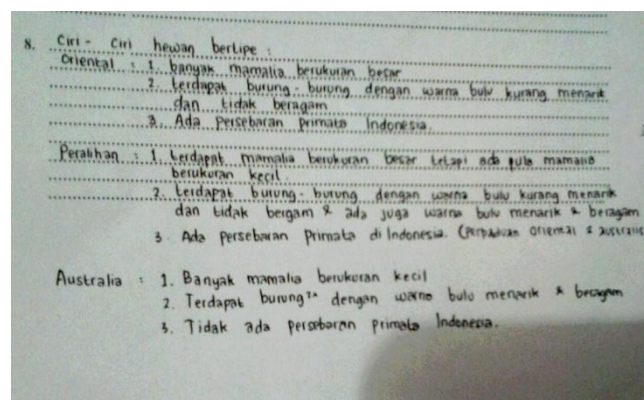 8. Ciri - Ciri hewan bertipe :
Oriental : 1. banyak mamalia berukuran besar
2. terdapat burung - burung dengan warna bulu kurang menarik
dan tidak beragam
3. Ada persebaran primata Indonesia.
Peralihan : 1. terdapat mamalia berukuran besar tetapi ada pula mamalia
berukuran kecil.
2. terdapat burung - burung dengan warna bulu kurang menarik
dan tidak bergam & ada juga warna bulu menarik & beragam
3. Ada persebaran primata di Indonesia. (Perpaduan oriental &
Australia : 1. Banyak mamalia berukuran kecil
2. Terdapat burung²ⁿ dengan warna bulu menarik & beragam
3. Tidak ada persebaran primata Indonesia.